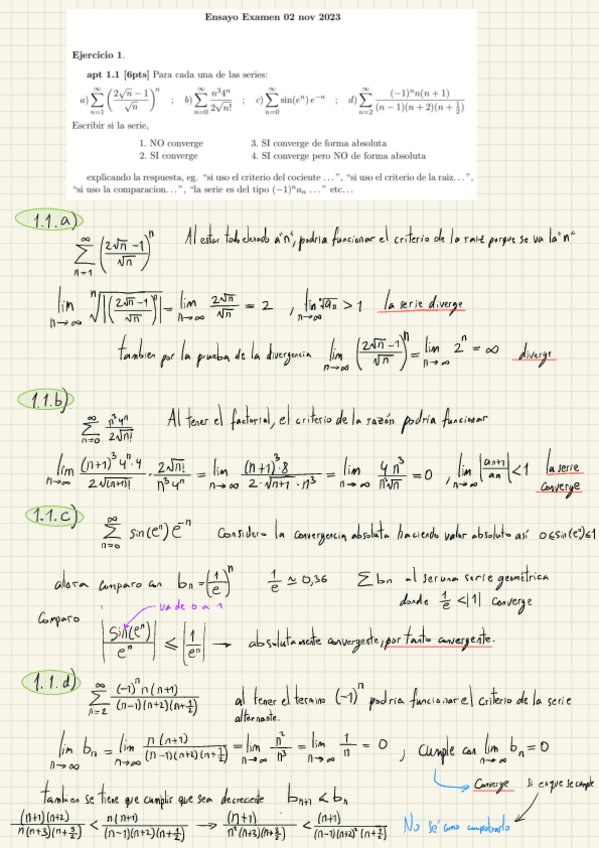 Ensayo Examen 02 nov 2023
Ejercicio 1.
apt 1.1 [6pts] Para cada una de las series:
a) \sum_{n=1}^{\infty} \left(\frac{2\sqrt{n}-1}{\sqrt{n}}\right)^n ; b) \sum_{n=0}^{\infty} \frac{n^3 4^n}{2\sqrt{n!}} ; c) \sum_{n=0}^{\infty} \sin(e^n) e^{-n} ; d) \sum_{n=2}^{\infty} \frac{(-1)^n n(n+1)}{(n-1)(n+2)(n+\frac{1}{2})}
Escribir si la serie,
1. NO converge 3. SI converge de forma absoluta
2. SI converge 4. SI converge pero NO de forma absoluta
explicando la respuesta, eg. “si uso el criterio del cociente ...”, “si uso el criterio de la raiz...”,
“si uso la comparacion...”, “la serie es del tipo (-1)^n a_n ...” etc...
1.1.a)
\sum_{n=1}^{\infty} \left(\frac{2\sqrt{n}-1}{\sqrt{n}}\right)^n Al estar todo elevado a "n", podria funcionar el criterio de la raiz porque se va la "n"
\lim_{n→∞} \sqrt[n]{\left|\left(\frac{2\sqrt{n}-1}{\sqrt{n}}\right)^n\right|} = \lim_{n→∞} \frac{2\sqrt{n}}{\sqrt{n}} = 2 , \lim_{n→∞} \sqrt[n]{a_n} > 1 la serie diverge
tambien por la prueba de la divergencia \lim_{n→∞} \left(\frac{2\sqrt{n}-1}{\sqrt{n}}\right)^n = \lim_{n→∞} 2^n = ∞ diverge
1.1.b)
\sum_{n=0}^{\infty} \frac{n^3 4^n}{2\sqrt{n!}} Al tener el factorial, el criterio de la razón podria funcionar
\lim_{n→∞} \frac{(n+1)^3 4^n·4}{2\sqrt{(n+1)!}} · \frac{2\sqrt{n!}}{n^3 4^n} = \lim_{n→∞} \frac{(n+1)^3·8}{2·\sqrt{n+1}·n^3} = \lim_{n→∞} \frac{4n^3}{n^3\sqrt{n}} = 0 , \lim_{n→∞} \left|\frac{a_{n+1}}{a_n}\right| < 1 la serie
converge
1.1.c)
\sum_{n=0}^{\infty} sin(e^n) e^{-n} Considero la convergencia absoluta haciendo valor absoluto así 0≤sin(e^n)≤1
ahora comparo con b_n = \left(\frac{1}{e}\right)^n \frac{1}{e} ≃ 0,36 Σ b_n al ser una serie geométrica
donde \frac{1}{e} < |1| converge
Comparo va de 0 a 1
\left|\frac{sin(e^n)}{e^n}\right| ≤ \left|\frac{1}{e^n}\right| → absolutamente convergente, por tanto convergente.
1.1.d)
\sum_{n=2}^{\infty} \frac{(-1)^n n(n+1)}{(n-1)(n+2)(n+\frac{1}{2})} al tener el termino (-1)^n podria funcionar el criterio de la serie
alternante.
\lim_{n→∞} b_n = \lim_{n→∞} \frac{n(n+1)}{(n-1)(n+2)(n+\frac{1}{2})} = \lim_{n→∞} \frac{n^2}{n^3} = \lim_{n→∞} \frac{1}{n} = 0 , Cumple con \lim_{n→∞} b_n = 0
Converge si es que se cumple
tambien se tiene que cumplir que sea decreciente b_{n+1} < b_n
\frac{(n+1)(n+2)}{n(n+3)(n+\frac{3}{2})} < \frac{n(n+1)}{(n-1)(n+2)(n+\frac{1}{2})} → \frac{(n+1)}{n^2(n+3)(n+\frac{3}{2})} < \frac{(n+1)}{(n-1)(n+2)^2(n+\frac{1}{2})} No sé como comprobarlo